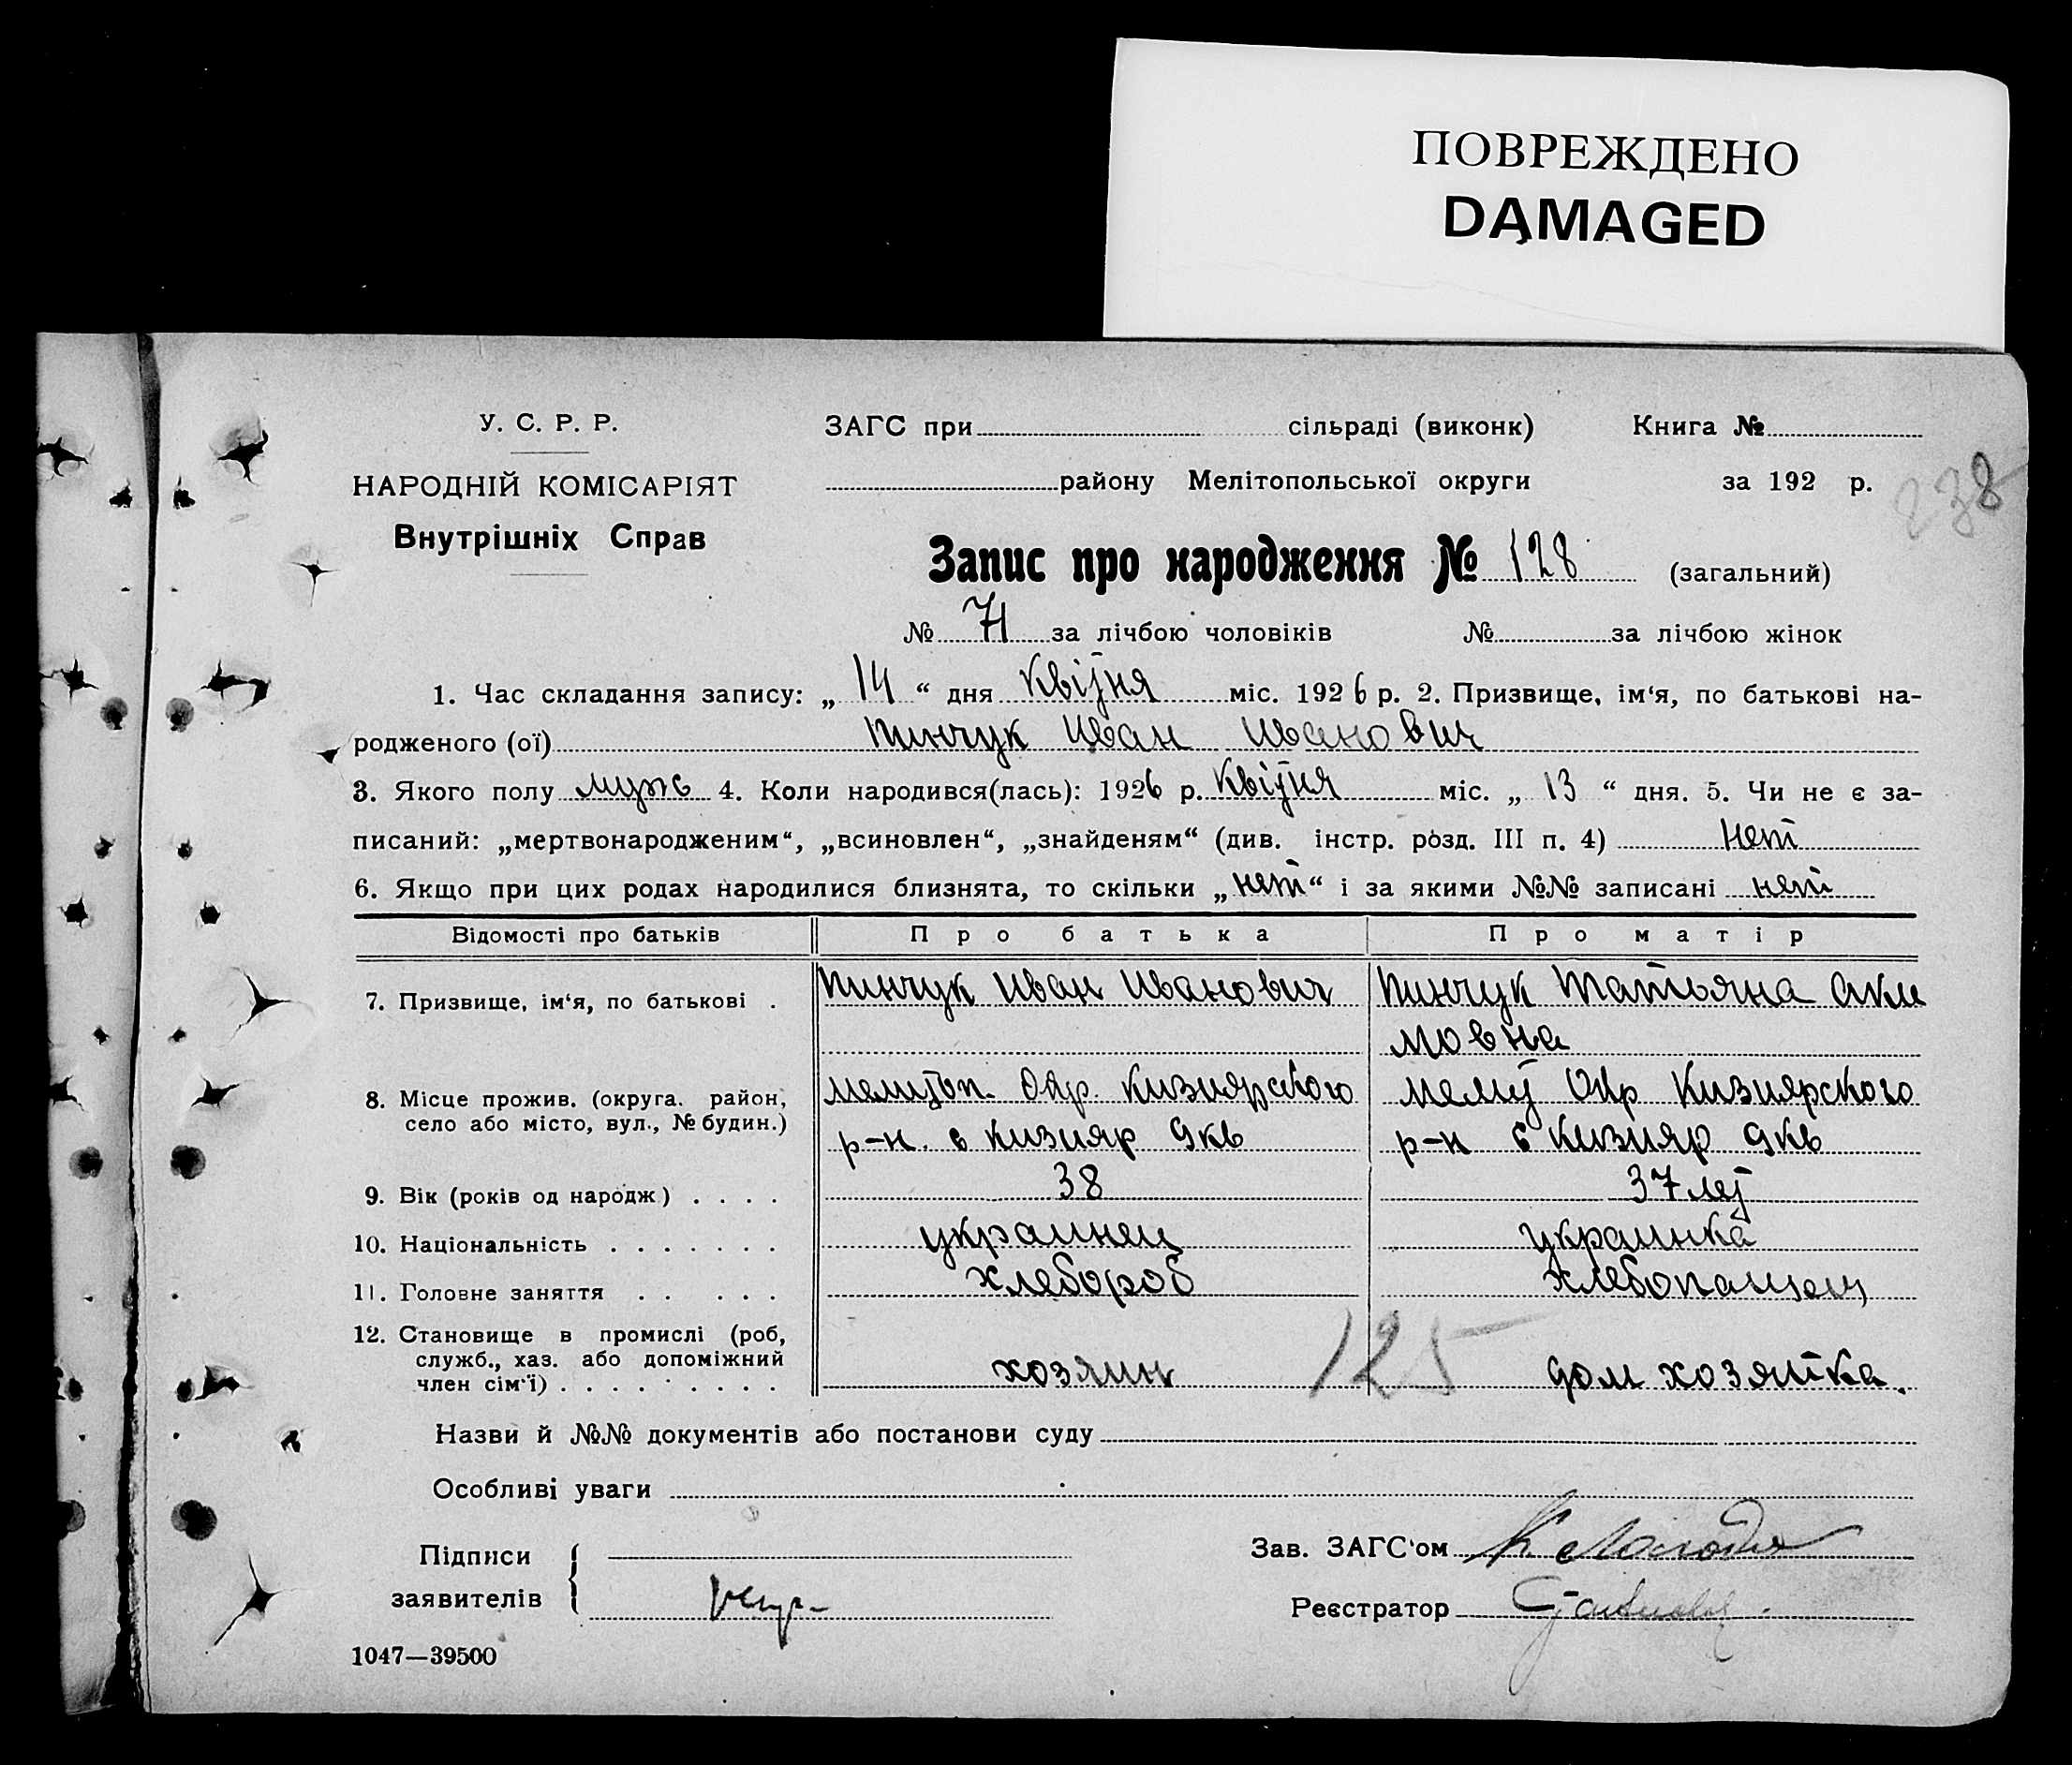 ПОВРЕЖДЕНО
DAMAGED
У. С. Р. Р.
НАРОДНІЙ КОМІСАРІЯТ
Внутрішніх Справ
ЗАГС при сільраді (виконк) Книга №
району Мелітопольської округи за 192 р.
238
Запис про народження № 128 (загальний)
№ 71 за лічбою чоловіків № за лічбою жінок
1. Час складання запису: „ 14 “ дня квітня міс. 1926 р. 2. Призвище, ім‘я, по батькові на-
родженого (ої) Пинчук Иван Иванович
3. Якого полу муж 4. Коли народився(лась): 1926 р. квітня міс. „ 13 “ дня. 5. Чи не є за-
писаний: „мертвонародженим“, „всиновлен“, „знайденям“ (див. інстр. розд. III п. 4) нет
6. Якщо при цих родах народилися близнята, то скільки „нет“ і за якими №№ записані нет
Відомості про батьків Про батька Про матір
7. Призвище, ім‘я, по батькові . Пинчук Иван Иванович Пинчук Татьяна Аки
мовна
8. Місце прожив. (округа. район, Мелитоп. Окр. Кизиярского Мелит Окр Кизиярского
село або місто, вул., № будин.) р-н. с Кизияр 9кв р-н с Кизияр 9кв
9. Вік (років од народж) . . . . 38 37 лет
10. Національність . . . . . . . украинец украинка
11. Головне заняття . . . . . хлебороб хлебопашец
12. Становище в промислі (роб,
служб., хаз. або допоміжний
член сім‘ї) . . . . . . . . . хозяин 125 дом хозяйка.
Назви й №№ документів або постанови суду
Особливі уваги
Підписи
заявителів
Зав. ЗАГС‘ом
Реєстратор
1047—39500